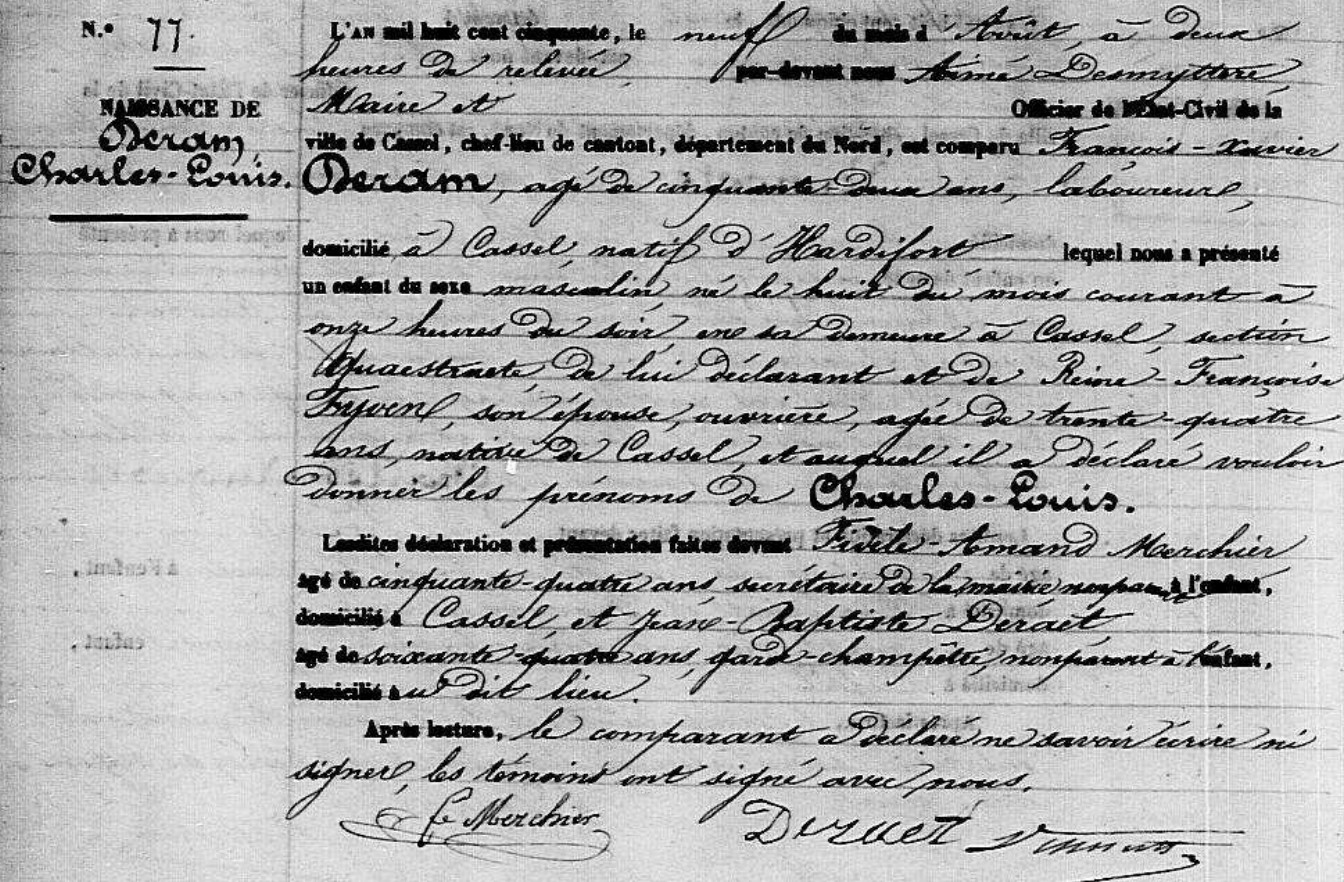 N.° 77.
NAISSANCE DE
Deram
Charles-Louis.
L'AN mil huit cent cinquante, le neuf du mois d'Août, à deux
heures de relevée, par-devant nous Aimé Desmyttere
Maire et Officier de l'Etat-Civil de la
ville de Cassel, chef-lieu de cantont, département du Nord, est comparu François-Xavier
Deram, agé de cinquante-deux ans, laboureur,
domicilié à Cassel, natif d'Hardifort lequel nous a présenté
un enfant du sexe masculin né le huit du mois courant à
onze heures du soir, en sa demeure à Cassel, section
de lui déclarant et de Reine-Françoise
son épouse, ouvrière, agée de trente-quatre
ans, native de Cassel, et auquel il a déclaré vouloir
donner les prénoms de Charles-Louis.
Lesdites déclaration et présentation faites devant Fidèle-Amand Merchier
agé de cinquante-quatre ans, secrétaire de la mairie non parent à l'enfant,
domicilié à Cassel, et Jean-Baptiste Deraet
agé de soixante-quatre ans, garde-champêtre, non parent à l'enfant,
domicilié au dit lieu.
Après lecture, le comparant a déclaré ne savoir écrire ni
signer, les témoins ont signé avec nous.
f Merchier Deraet